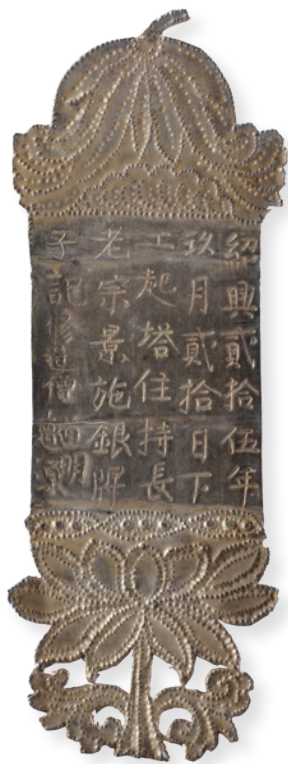 紹興貳拾伍年
玖月貳拾日下
工起塔住持長
老宗景施銀牌
子記修塔僧